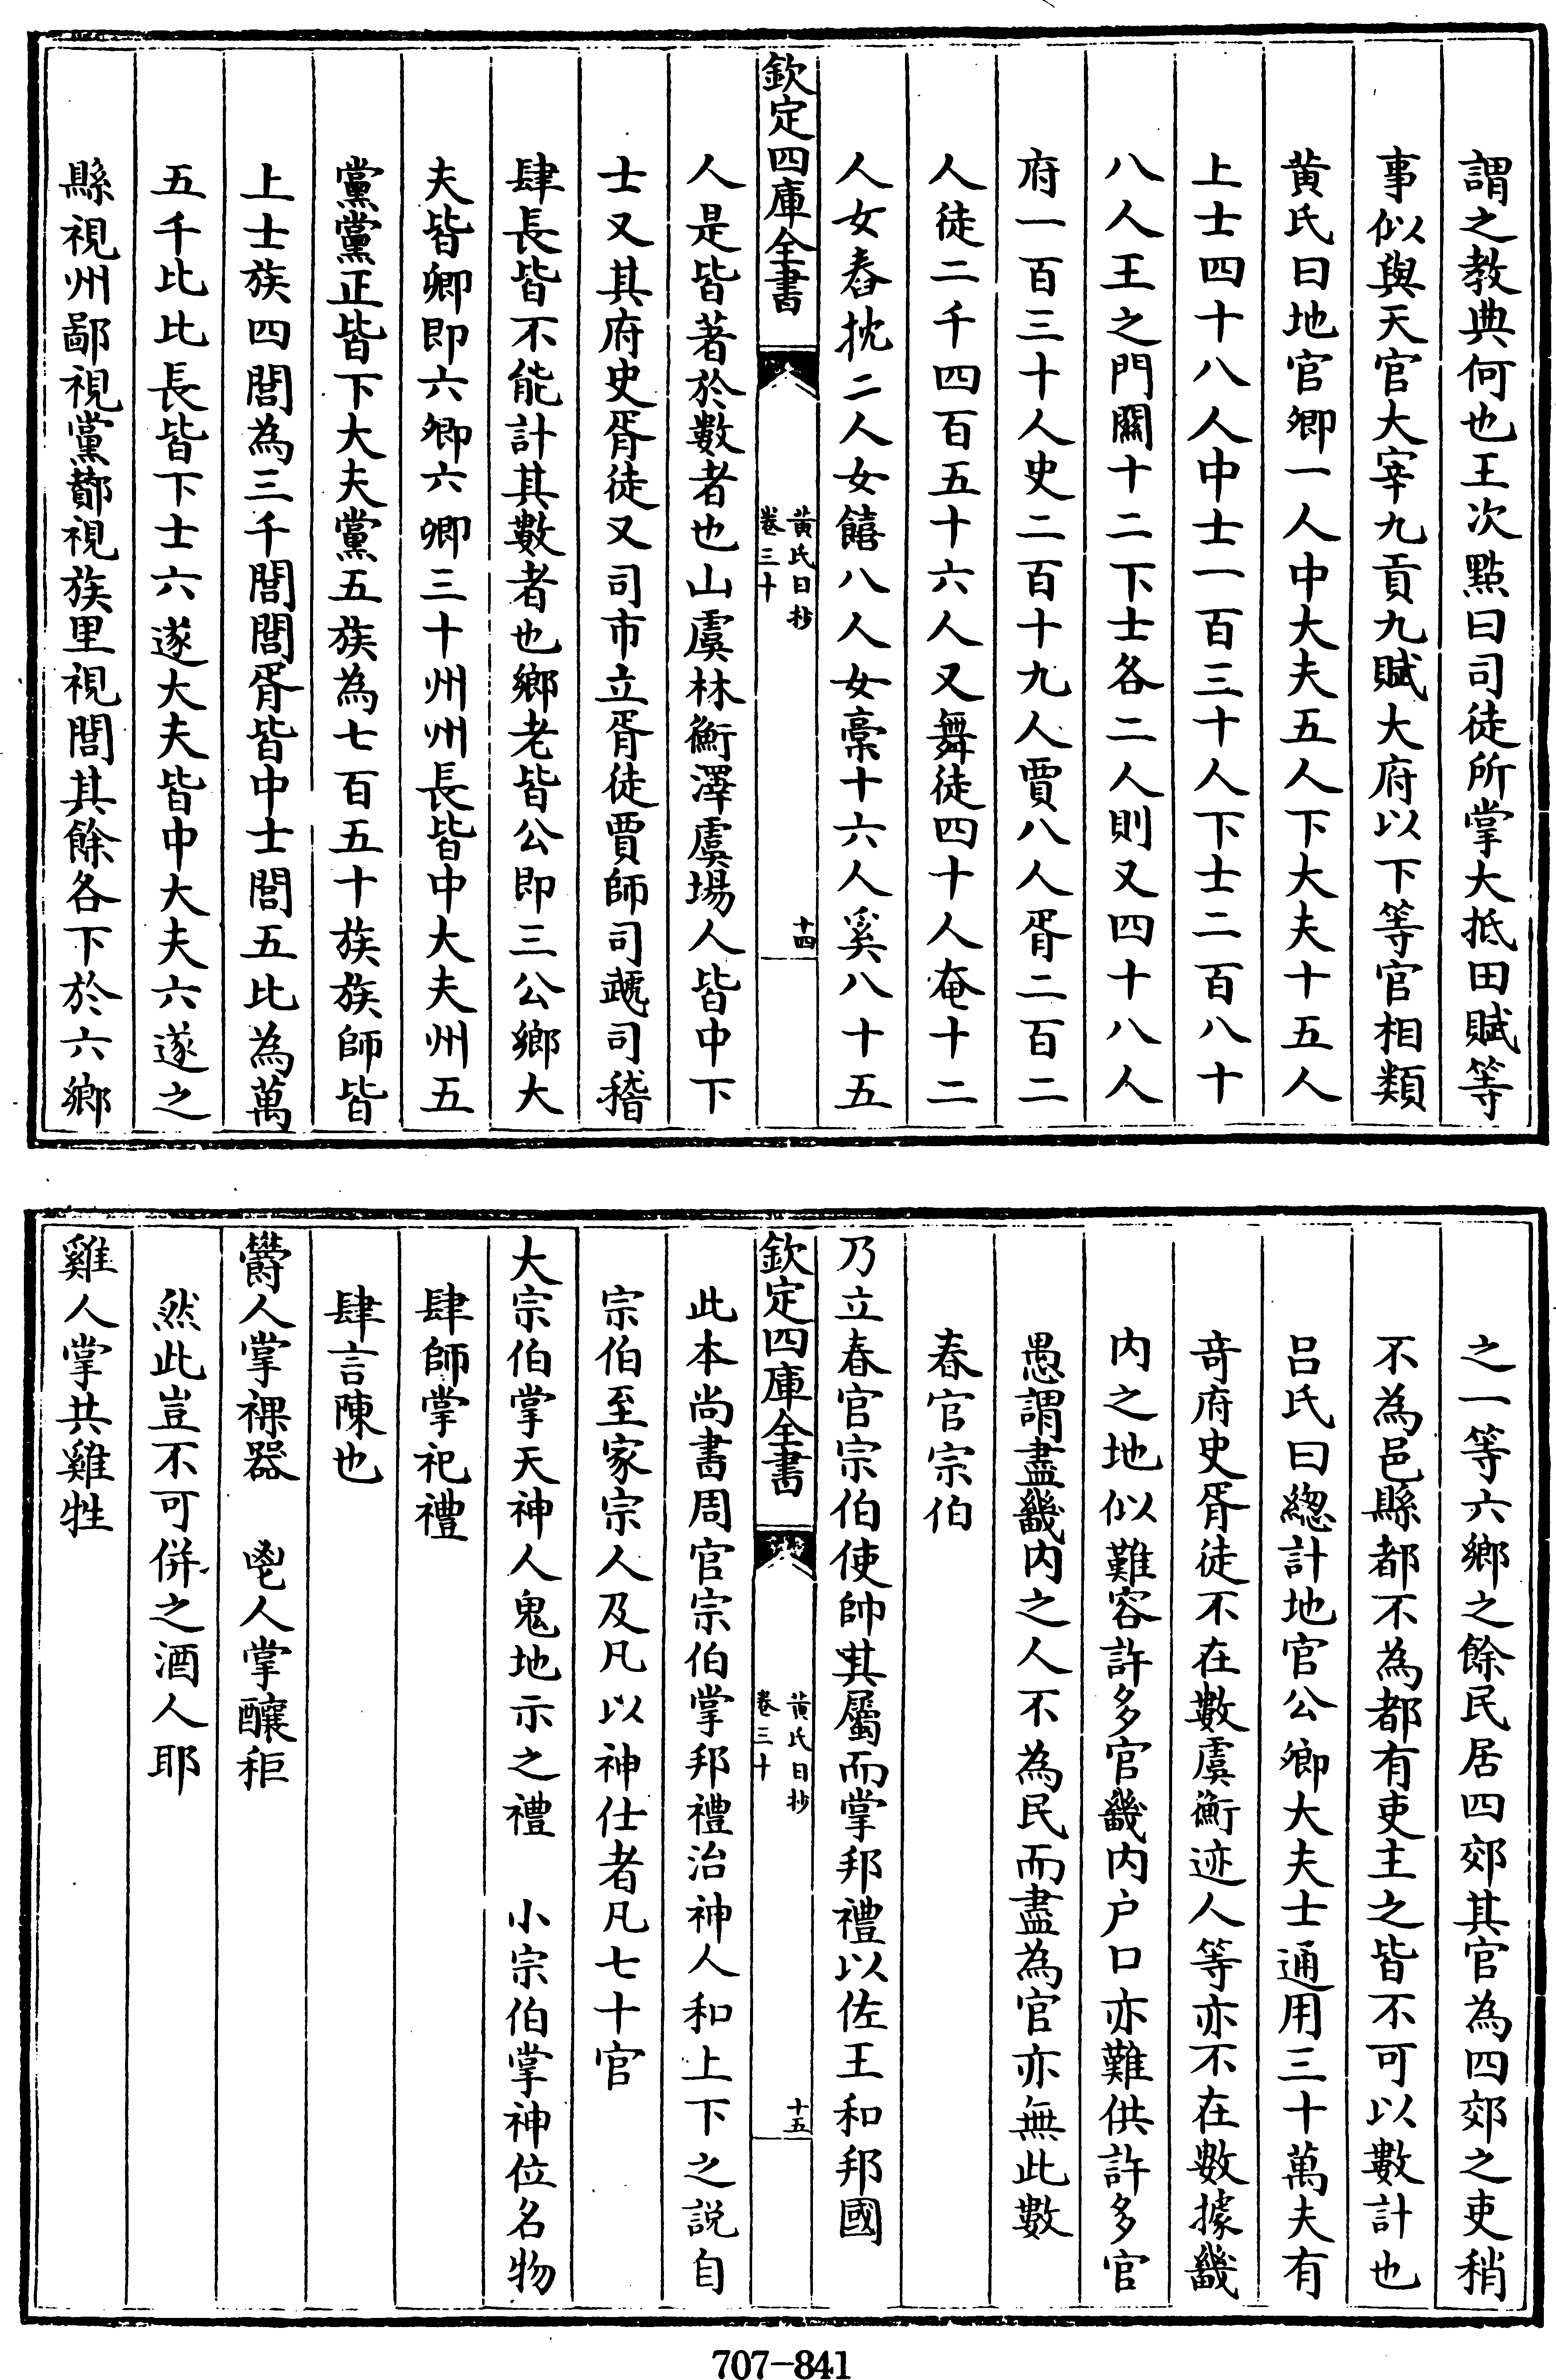 謂之教典何也王次點曰司徒所掌大抵田賦等
事似與天官大宰九貢九賦大府以下等官相類
黄氏曰地官卿一人中大夫五人下大夫十五人
上士四十八人中士一百三十人下士二百八十
八人王之門關十二下士各二人則又四十八人
府一百三十人史二百十九人賈八人胥二百二
人徒二千四百五十六人又舞徒四十人奄十二
人女舂抌二人女饎八人女槀十六人奚八十五
欽定四庫全書
黄氏日抄
卷三十
十四
人是皆著於數者也山虞林衡澤虞場人皆中下
士又其府史胥徒又司市立胥徒賈師司虣司稽
肆長皆不能計其數者也鄉老皆公即三公鄉大
夫皆卿即六卿六卿三十州州長皆中大夫州五
黨黨正皆下大夫黨五族為七百五十族族師皆
上士族四閭為三千閭閭胥皆中士閭五比為萬
五千比比長皆下士六遂大夫皆中大夫六遂之
縣視州鄙視黨酇視族里視閭其餘各下於六鄉
之一等六鄉之餘民居四郊其官為四郊之吏稍
不為邑縣都不為都有吏主之皆不可以數計也
吕氏曰緫計地官公卿大夫士通用三十萬夫有
竒府史胥徒不在數虞衡迹人等亦不在數據畿
内之地似難容許多官畿内户口亦難供許多官
愚謂盡畿内之人不為民而盡為官亦無此數
春官宗伯
乃立春官宗伯使帥其屬而掌邦禮以佐王和邦國
欽定四庫全書
黄氏日抄
卷三十
十五
此本尚書周官宗伯掌邦禮治神人和上下之説自
宗伯至家宗人及凡以神仕者凡七十官
大宗伯掌天神人鬼地示之禮　小宗伯掌神位名物
肆師掌祀禮
肆言陳也
鬱人掌祼器　鬯人掌釀秬
然此豈不可併之酒人耶
雞人掌共雞牲
707-841